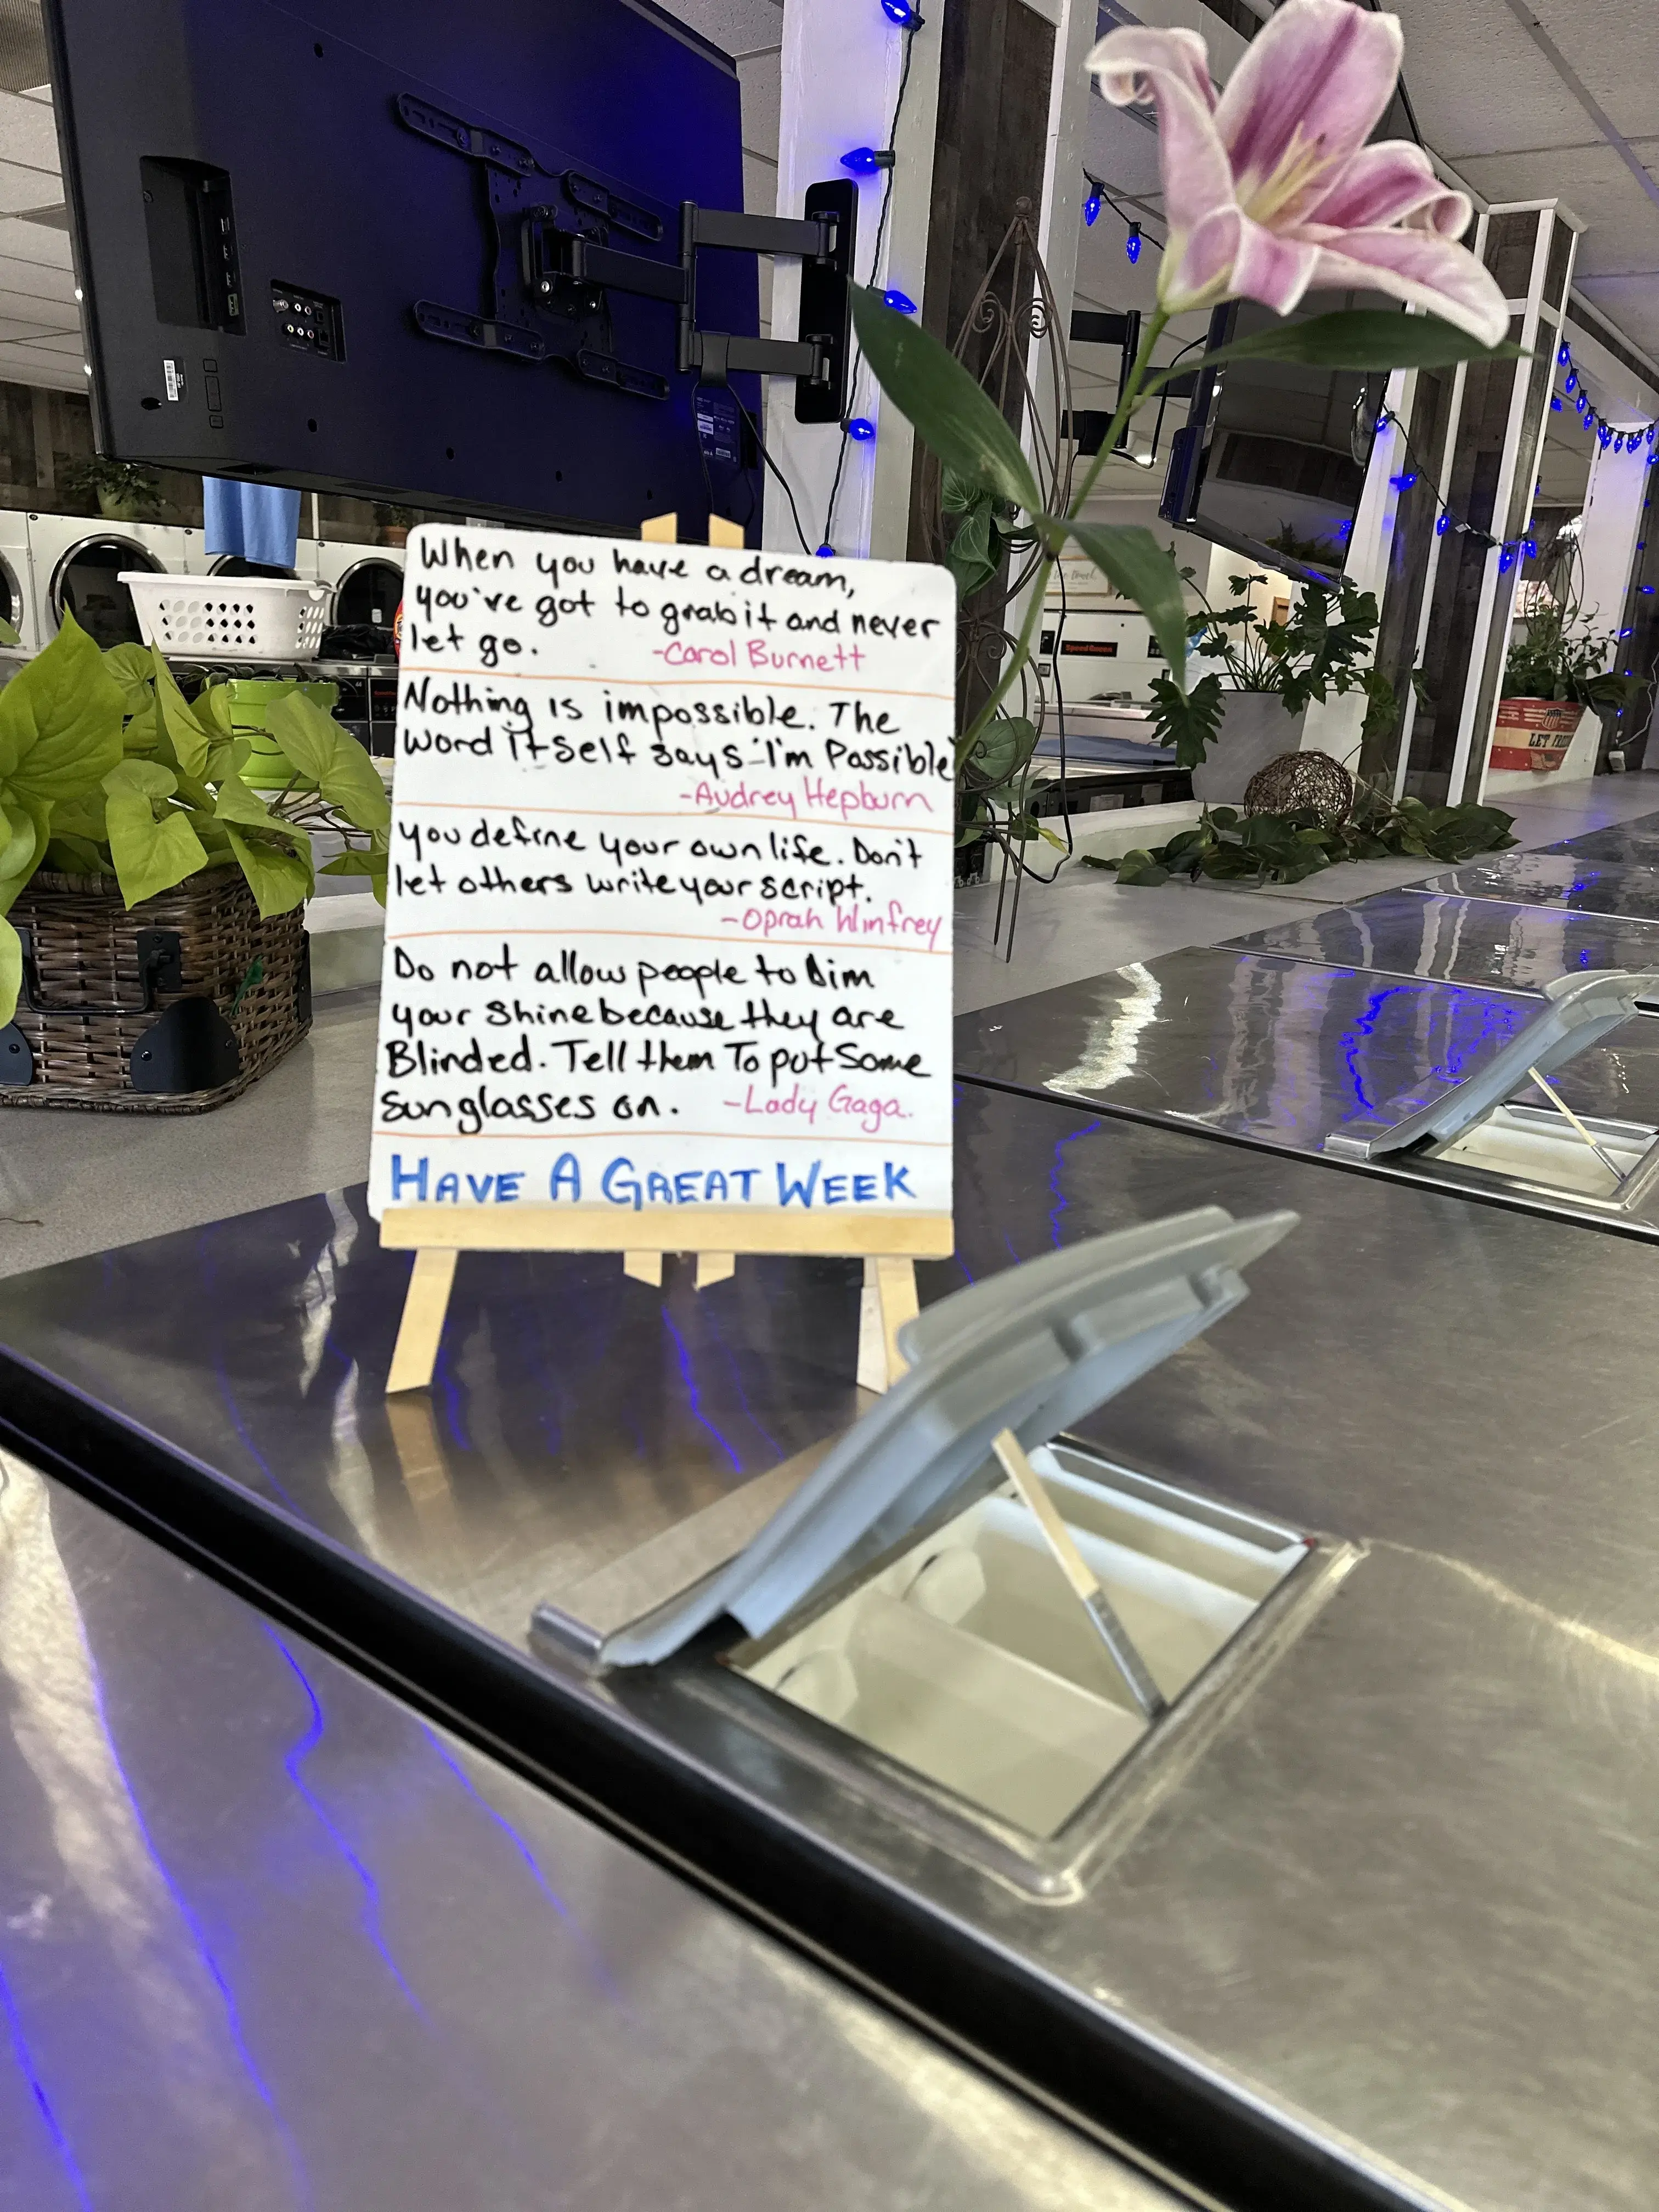 When you have a dream,
you've got to grab it and never
let go. -Carol Burnett
Nothing is impossible. The
word itself says 'I'm Possible'
-Audrey Hepburn
you define your own life. Don't
let others write your script.
-Oprah Winfrey
Do not allow people to Dim
your Shine because they are
Blinded. Tell them To put Some
Sunglasses on. -Lady Gaga.
HAVE A GREAT WEEK
Speed Queen
LET